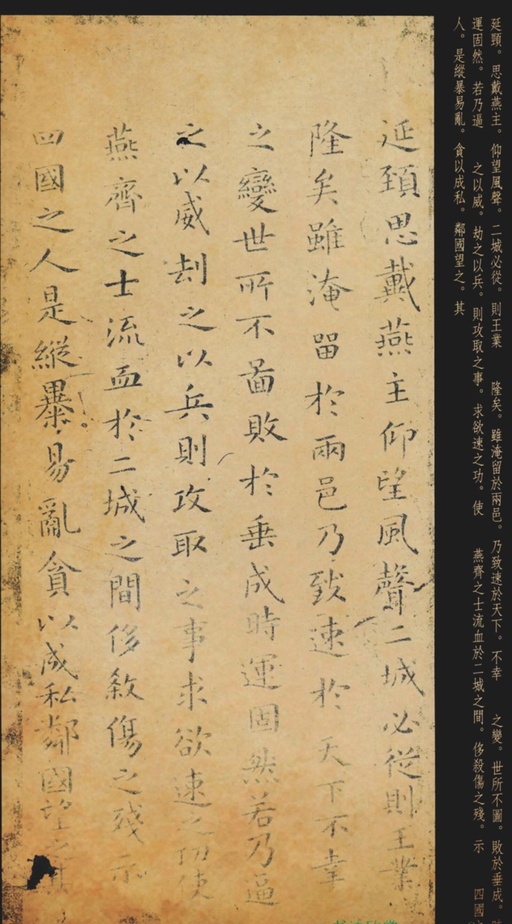 延頸思戴燕主仰望風聲二城必從則王業
隆矣雖淹留於兩邑乃致速於天下不幸
之變世所不啚敗於垂成時運固然若乃逼
之以威劫之以兵則攻取之事求欲速之功使
燕齊之士流血於二城之間侈敘傷之殘示
四國之人是縱暴易亂貪以成私鄰國望之其
延頸。思戴燕主。仰望風聲。二城必從。則王業　隆矣。雖淹留於兩邑。乃致速於天下。不幸　之變。世所不圖。敗於垂成。
運固然。若乃逼　之以威。劫之以兵。則攻取之事。求欲速之功。使　燕齊之士流血於二城之間。侈殺傷之殘。示　四國
人。是縱暴易亂。貪以成私。鄰國望之。其